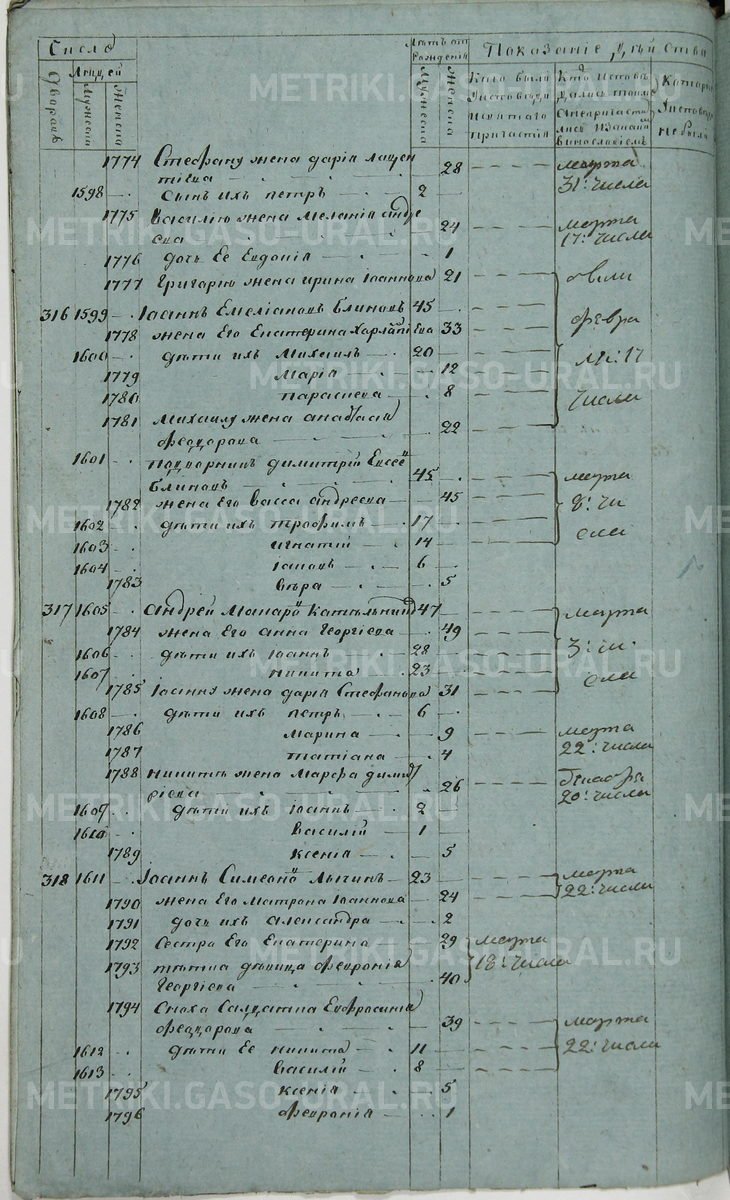 Число
Людей
Дворовъ
Мужеска
Женска
Лѣтъ отъ рожденія
Мужеска
Женска
Показаніе дѣйства
Кто были у исповѣди и святаго причастія
1774 Стефану жена дарія лаврен
тіева 28 марта
1598 сынъ ихъ петръ 2 31: числа
1775 Василію жена Меланія андре
ева 24 марта 17: числа
1776 дочь Ее Евдокія 1
1777 Григорію жена ирина Іоаннова 21
316 1599 Іоаннъ Емеліановъ Блиновъ 45 февра
1778 жена Его Екатерина Харлампіева 33
1600 дѣти ихъ Михаилъ 20 17
1779 Марія 12
1780 параскева 8 числа
1781 Михаилу жена анастасія
феодорова 22
1601 подворникъ димитрій Евсѣе
Блиновъ 45 марта
1782 жена Его васса андреева 45 8: чи
1602 дѣти ихъ трофимъ 17
1603 игнатій 14 сла
1604 іаковъ 6
1783 вѣра 5
317 1605 Андрей Макаро Катѣльник 47 марта
1784 жена Его анна Георгіева 49
1606 дѣти ихъ Іоаннъ 28 3: чи
1607 никита 23 сла
1785 Іоанну жена дарія Стефанова 31
1608 дѣти ихъ петръ 6
1786 Марина 9 марта
1787 татіана 4 22: числа
1788 никитѣ жена Марфа димит
ріева 26 20: числа
1609 дѣти ихъ Іоаннъ 2
1610 василій 1
1789 ксенія 5
318 1611 Іоаннъ Симеоно Лыкинъ 23 марта
1790 жена Его Матрона Іоаннова 24 22: числа
1791 дочь ихъ александра 2
1792 Сестра Его Екатерина 29 марта
1793 тѣтка дѣвица февронія 18: числа
Георгіева 40
1794 Сноха Салдатка Евфросинія
феодорова 39 марта
1612 дѣти Ее никита 11 22: числа
1613 василій 8
1795 ксенія 5
1796 февронія 1
METRIKI.GASO-URAL.RU